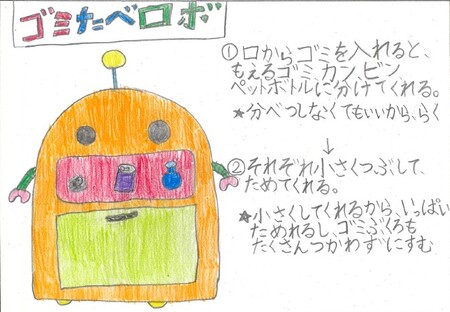 ゴミたべロボ
①口からゴミを入れると、
もえるゴミ、カン、ビン、
ペットボトルに分けてくれる。
★分べつしなくてもいいから、らく
↓
②それぞれ小さくつぶして、
ためてくれる。
★小さくしてくれるから、いっぱい
ためれるし、ゴミぶくろも
たくさんつかわずにすむ